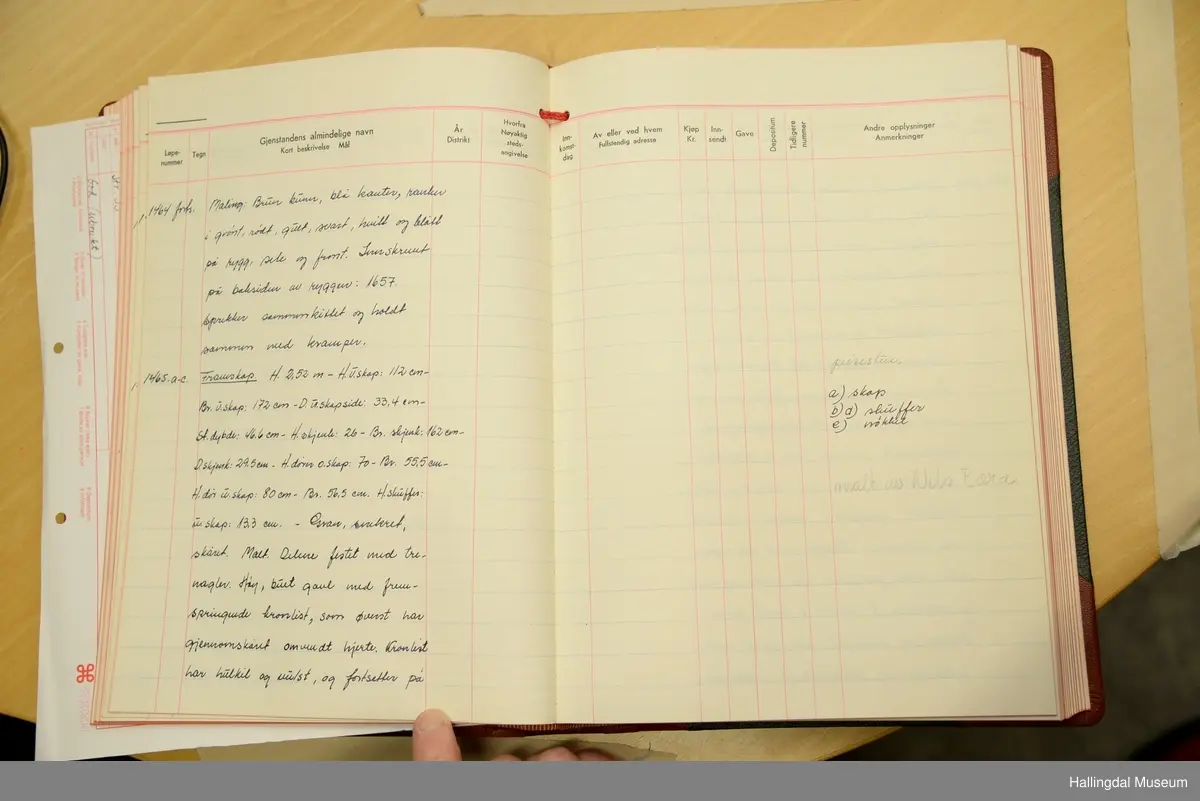 Løpe-
nummer
Tegn
Gjenstandens almindelige navn
Kort beskrivelse Mål
År
Distrikt
Hvorfra
Nøyaktig
steds-
angivelse
Inn-
komst-
dag
Av eller ved hvem
Fullstendig adresse
Kjøp
Kr.
Inn-
sendt
Gave
Depositum
Tidligere
nummer
Andre opplysninger
Anmerkninger
1464 forts. Maling: Brun bunn, blå kanter, ranker
i grønt, rødt, gult, svart, hvitt og blått
på rygg, sete og front. Innskrevet
på baksiden av ryggen: 1657.
Sprekker sammenkittet og holdt
sammen med kramper.
1465.a-c. Framskap. H 2,52 m - H.ü.skap: 112 cm-
Br. ü.skap: 172 cm - D.ü.skapside: 33,4 cm-
St. dybde: 46.6 cm - H. skjenk: 26 - Br. skjenk: 162 cm-
D.skjenk: 29.5 cm - H. dører o.skap: 70 - Br. 55,5 cm-
H. dör ü.skap: 80 cm - Br. 56.5 cm. H. skuffer:
ü.skap: 13.3 cm. -
skåret. Malt. Delene festet med tre-
nagler. Høy, buet gavl med frem-
springende kronlist, som øverst har
gjennomskåret omvendt hjerte. Kronlist
har hulkil og vulst, og fortsetter på
a) skap
b) d) skuffer
e) nøkkel
malt av Nils Bæra
Hallingdal Museum